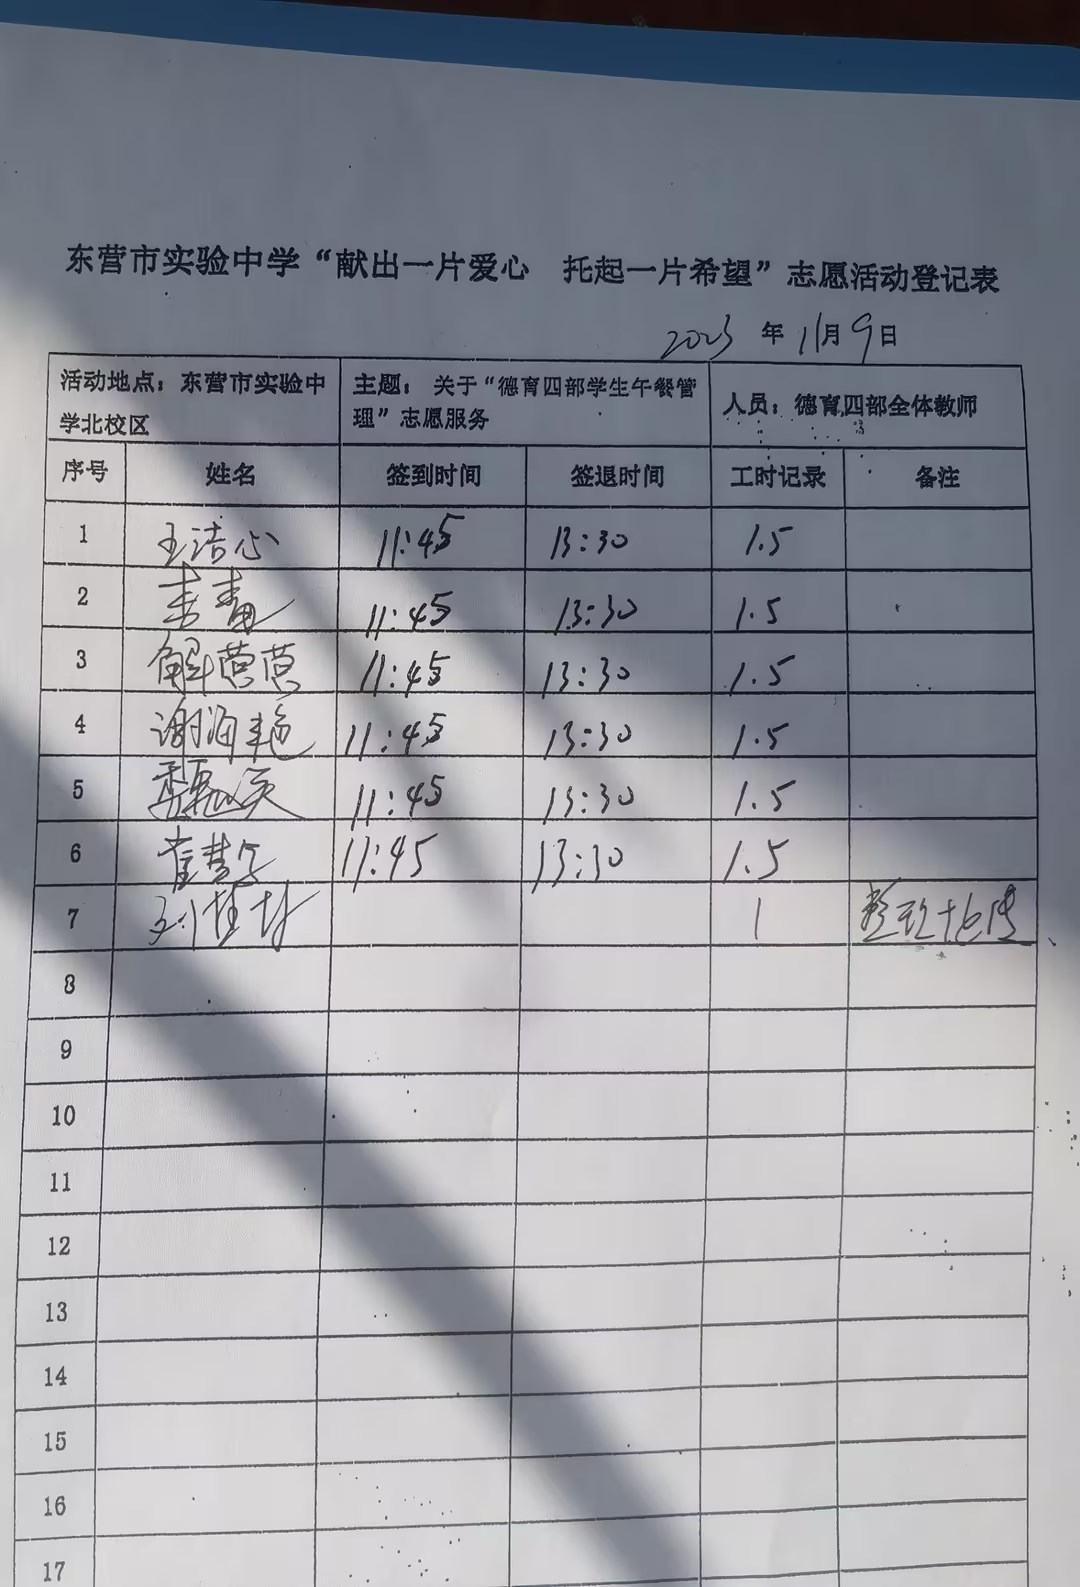 东营市实验中学“献出一片爱心 托起一片希望”志愿活动登记表
2023年11月9日
活动地点：东营市实验中学北校区 主题：关于“德育四部学生午餐管理”志愿服务 人员：德育四部全体教师
序号 姓名 签到时间 签退时间 工时记录 备注
1 王洁心 11:45 13:30 1.5
2 11:45 13:30 1.5
3 解莹莹 11:45 13:30 1.5
4 谢海艳 11:45 13:30 1.5
5 11:45 13:30 1.5
6 11:45 13:30 1.5
7 1
8
9
10
11
12
13
14
15
16
17